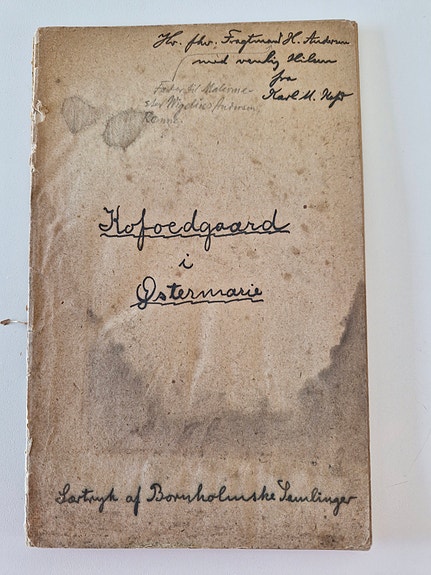 Hr. fhv. Fragtmand H. Andersen
med venlig Hilsen
fra
Karl M. Kofod
Fader til Malerme-
ster Andersen,
Rønne.
Kofoedgaard
i
Østermarie
Særtryk af Bornholmske Samlinger